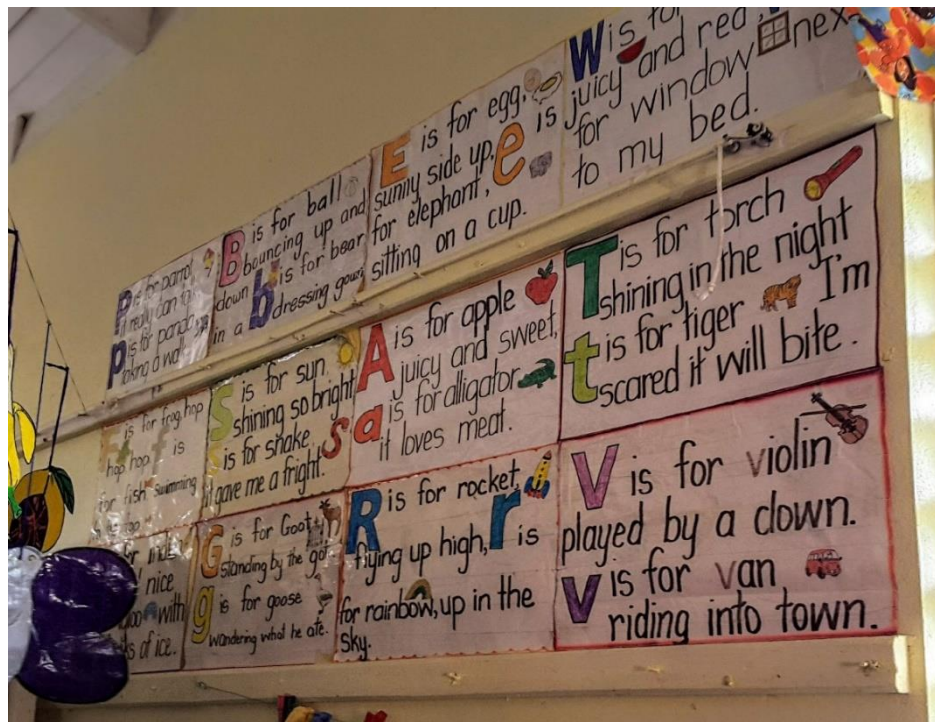 P is for parrot
it really can
p is for panda,
taking a walk
B is for ball
bouncing up and
down b is for bear
in a dressing gown
E is for egg,
sunny side up,
e is
for elephant,
sitting on a cup.
W is for
juicy and red,
for window
to my bed.
F is for frog, hop
hop hop f is
for fish swimming
S is for sun
shining so bright
s is for snake
it gave me a fright.
A is for apple
juicy and sweet,
a is for alligator
it loves meat.
T is for torch
shining in the night
t is for tiger I'm
scared it will bite.
nice
with
of ice.
G is for Goat
standing by the
g is for goose
wandering what he ate.
R is for rocket,
flying up high, r is
for rainbow, up in the
sky.
V is for violin
played by a clown.
v is for van
riding into town.